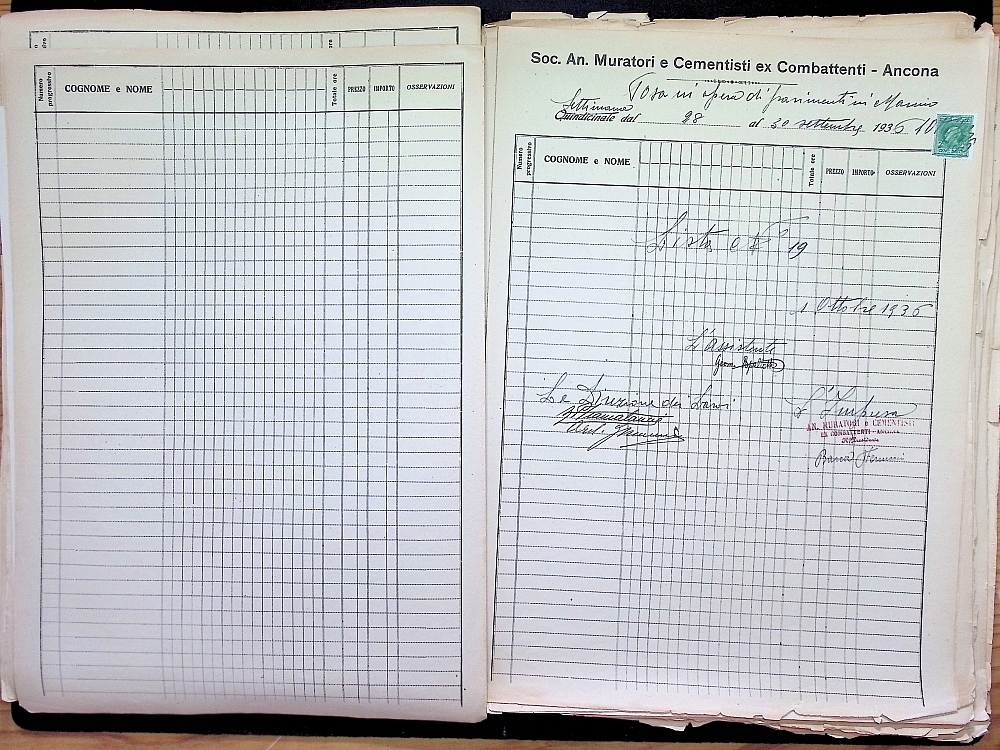 Numero progressivo COGNOME e NOME Totale ore PREZZO IMPORTO OSSERVAZIONI
Soc. An. Muratori e Cementisti ex Combattenti - Ancona
Posa in opera di pavimenti in Marmo
Settimana
Quindicinale dal 28 al 30 settembre 1936
Numero progressivo COGNOME e NOME Totale ore PREZZO IMPORTO OSSERVAZIONI
Lista N° 19
1 Ottobre 1936
L'Assistente
Geom.
La Direzione dei Lavori
L'Impresa
AN. MURATORI e CEMENTISTI
EX COMBATTENTI - ANCONA
Il Presidente